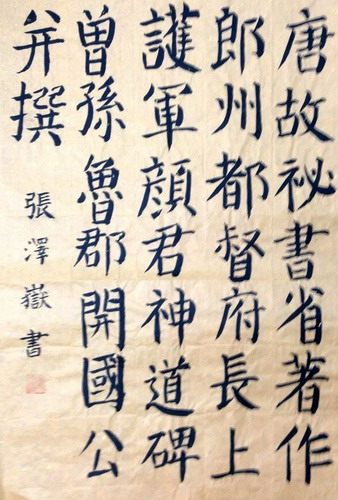 唐故祕書省著作
郎州都督府長上
護軍顔君神道碑
曽孫魯郡開國公
并撰
張澤嶽書